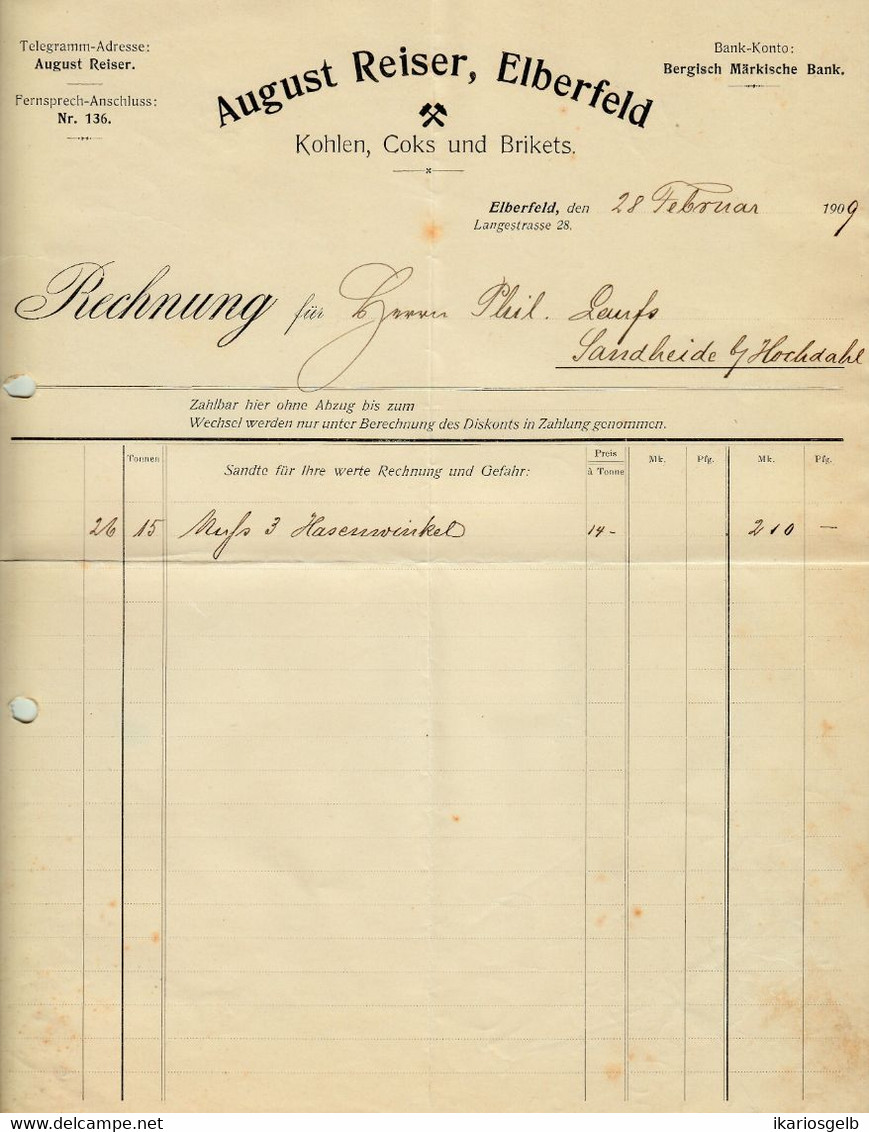 Telegramm-Adresse:
August Reiser.
Fernsprech-Anschluss:
Nr. 136.
August Reiser, Elberfeld
Kohlen, Coks und Brikets.
Bank-Konto:
Bergisch Märkische Bank.
Elberfeld, den 28 Februar 1909
Langestrasse 28.
Rechnung für Herrn Phil. Laufs
Sandheide b/ Hochdahl
Zahlbar hier ohne Abzug bis zum
Wechsel werden nur unter Berechnung des Diskonts in Zahlung genommen.
Tonnen Sandte für Ihre werte Rechnung und Gefahr: Preis à Tonne Mk. Pfg. Mk. Pfg.
26 15 Nuss 3 Hasenwinkel 14- 210 —
Delcampe.net
ikariosgelb